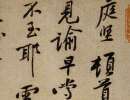 庭堅頓首
見諭早嘗
不玉耶雲